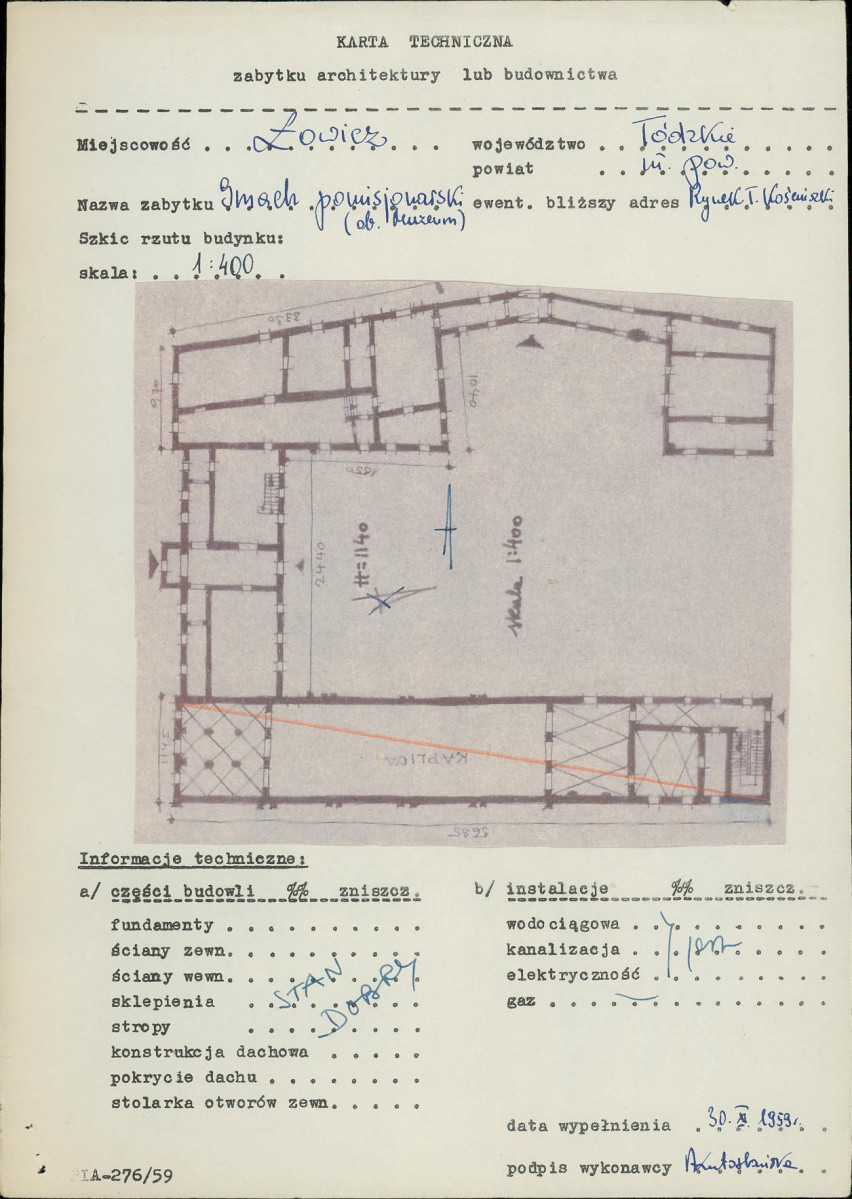 KARTA TECHNICZNA
zabytku architektury lub budownictwa
Miejscowość . . Łowicz . . .
województwo . . Łódzkie . . .
powiat . . m. pow. . . .
Nazwa zabytku Gmach pomisjonarski
(ob. Muzeum)
ewent. bliższy adres Rynek T. Kościuszki
Szkic rzutu budynku:
skala: . . 1:400 . .
3330
970
1040
2440
H=1140
skala 1:400
1145
KAPLICA
5685
Informacje techniczne:
a/ części budowli %% zniszcz.
fundamenty . . . . . . . . . .
ściany zewn. . . . . . . . . .
ściany wewn. . . . . . . . . .
sklepienia . . . . . . . . .
stropy . . . . . . . . .
konstrukcja dachowa . . . . .
pokrycie dachu . . . . . . . .
stolarka otworów zewn. . . . .
STAN
DOBRY
b/ instalacje %% zniszcz.
wodociągowa . . . . . . . . . .
kanalizacja . . . . . . . . . .
jest
elektryczność . . . . . . . . .
gaz . . . – . . . . . . . . .
data wypełnienia . 30. XI. 1959r.
podpis wykonawcy
IA-276/59